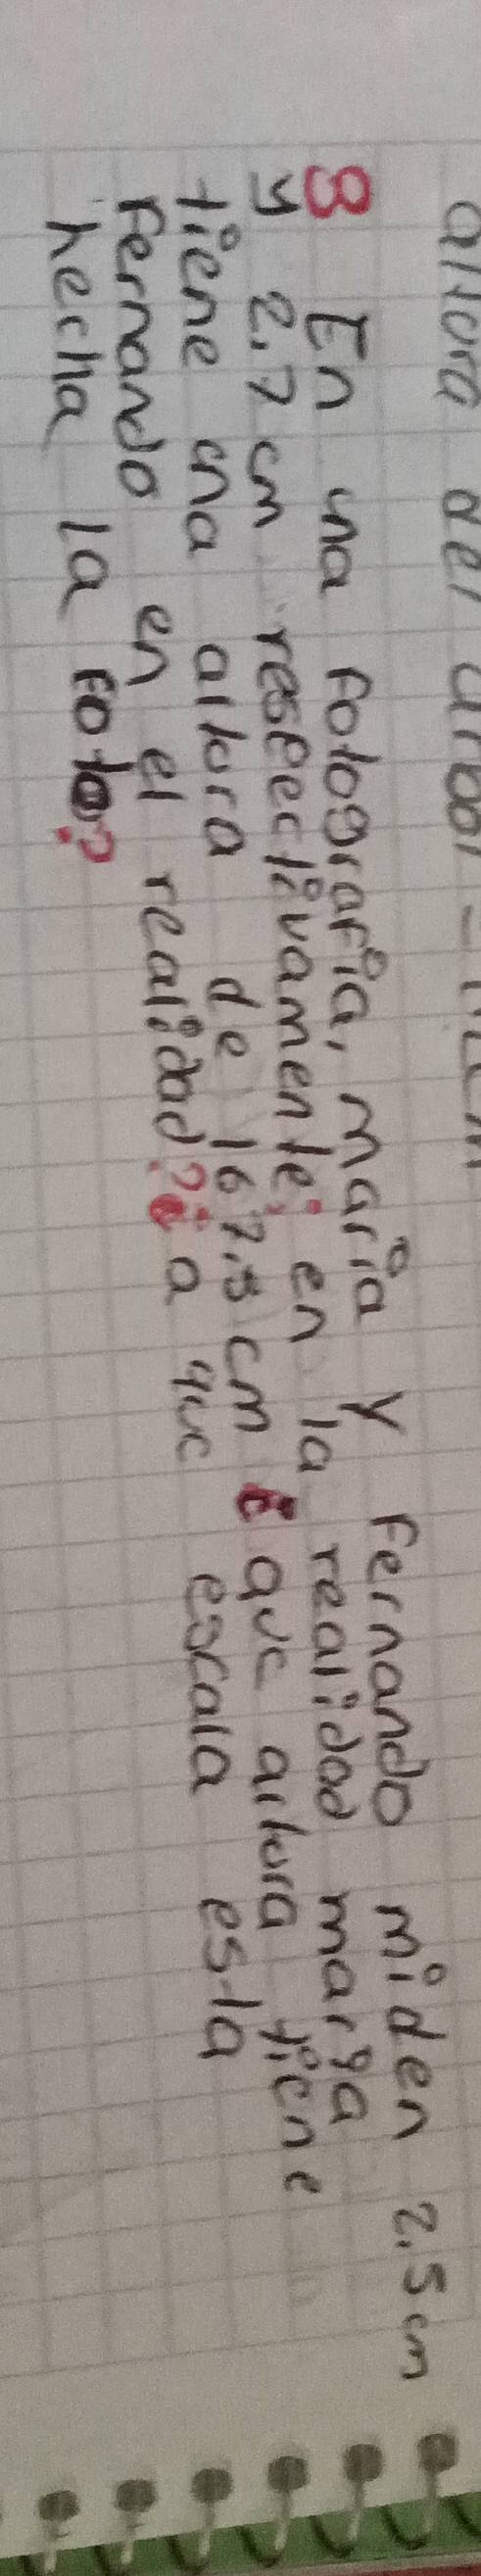 altura del arbol =
3 En una fotografia, maria y Fernando miden 2.5 cm
y 2.7 cm respectivamente; en la realidad maria
tiene una altura de 167.5 cm ¿ que altura tiene
Fernando en el realidad? ¿ a que escala esta
hecha la foto?